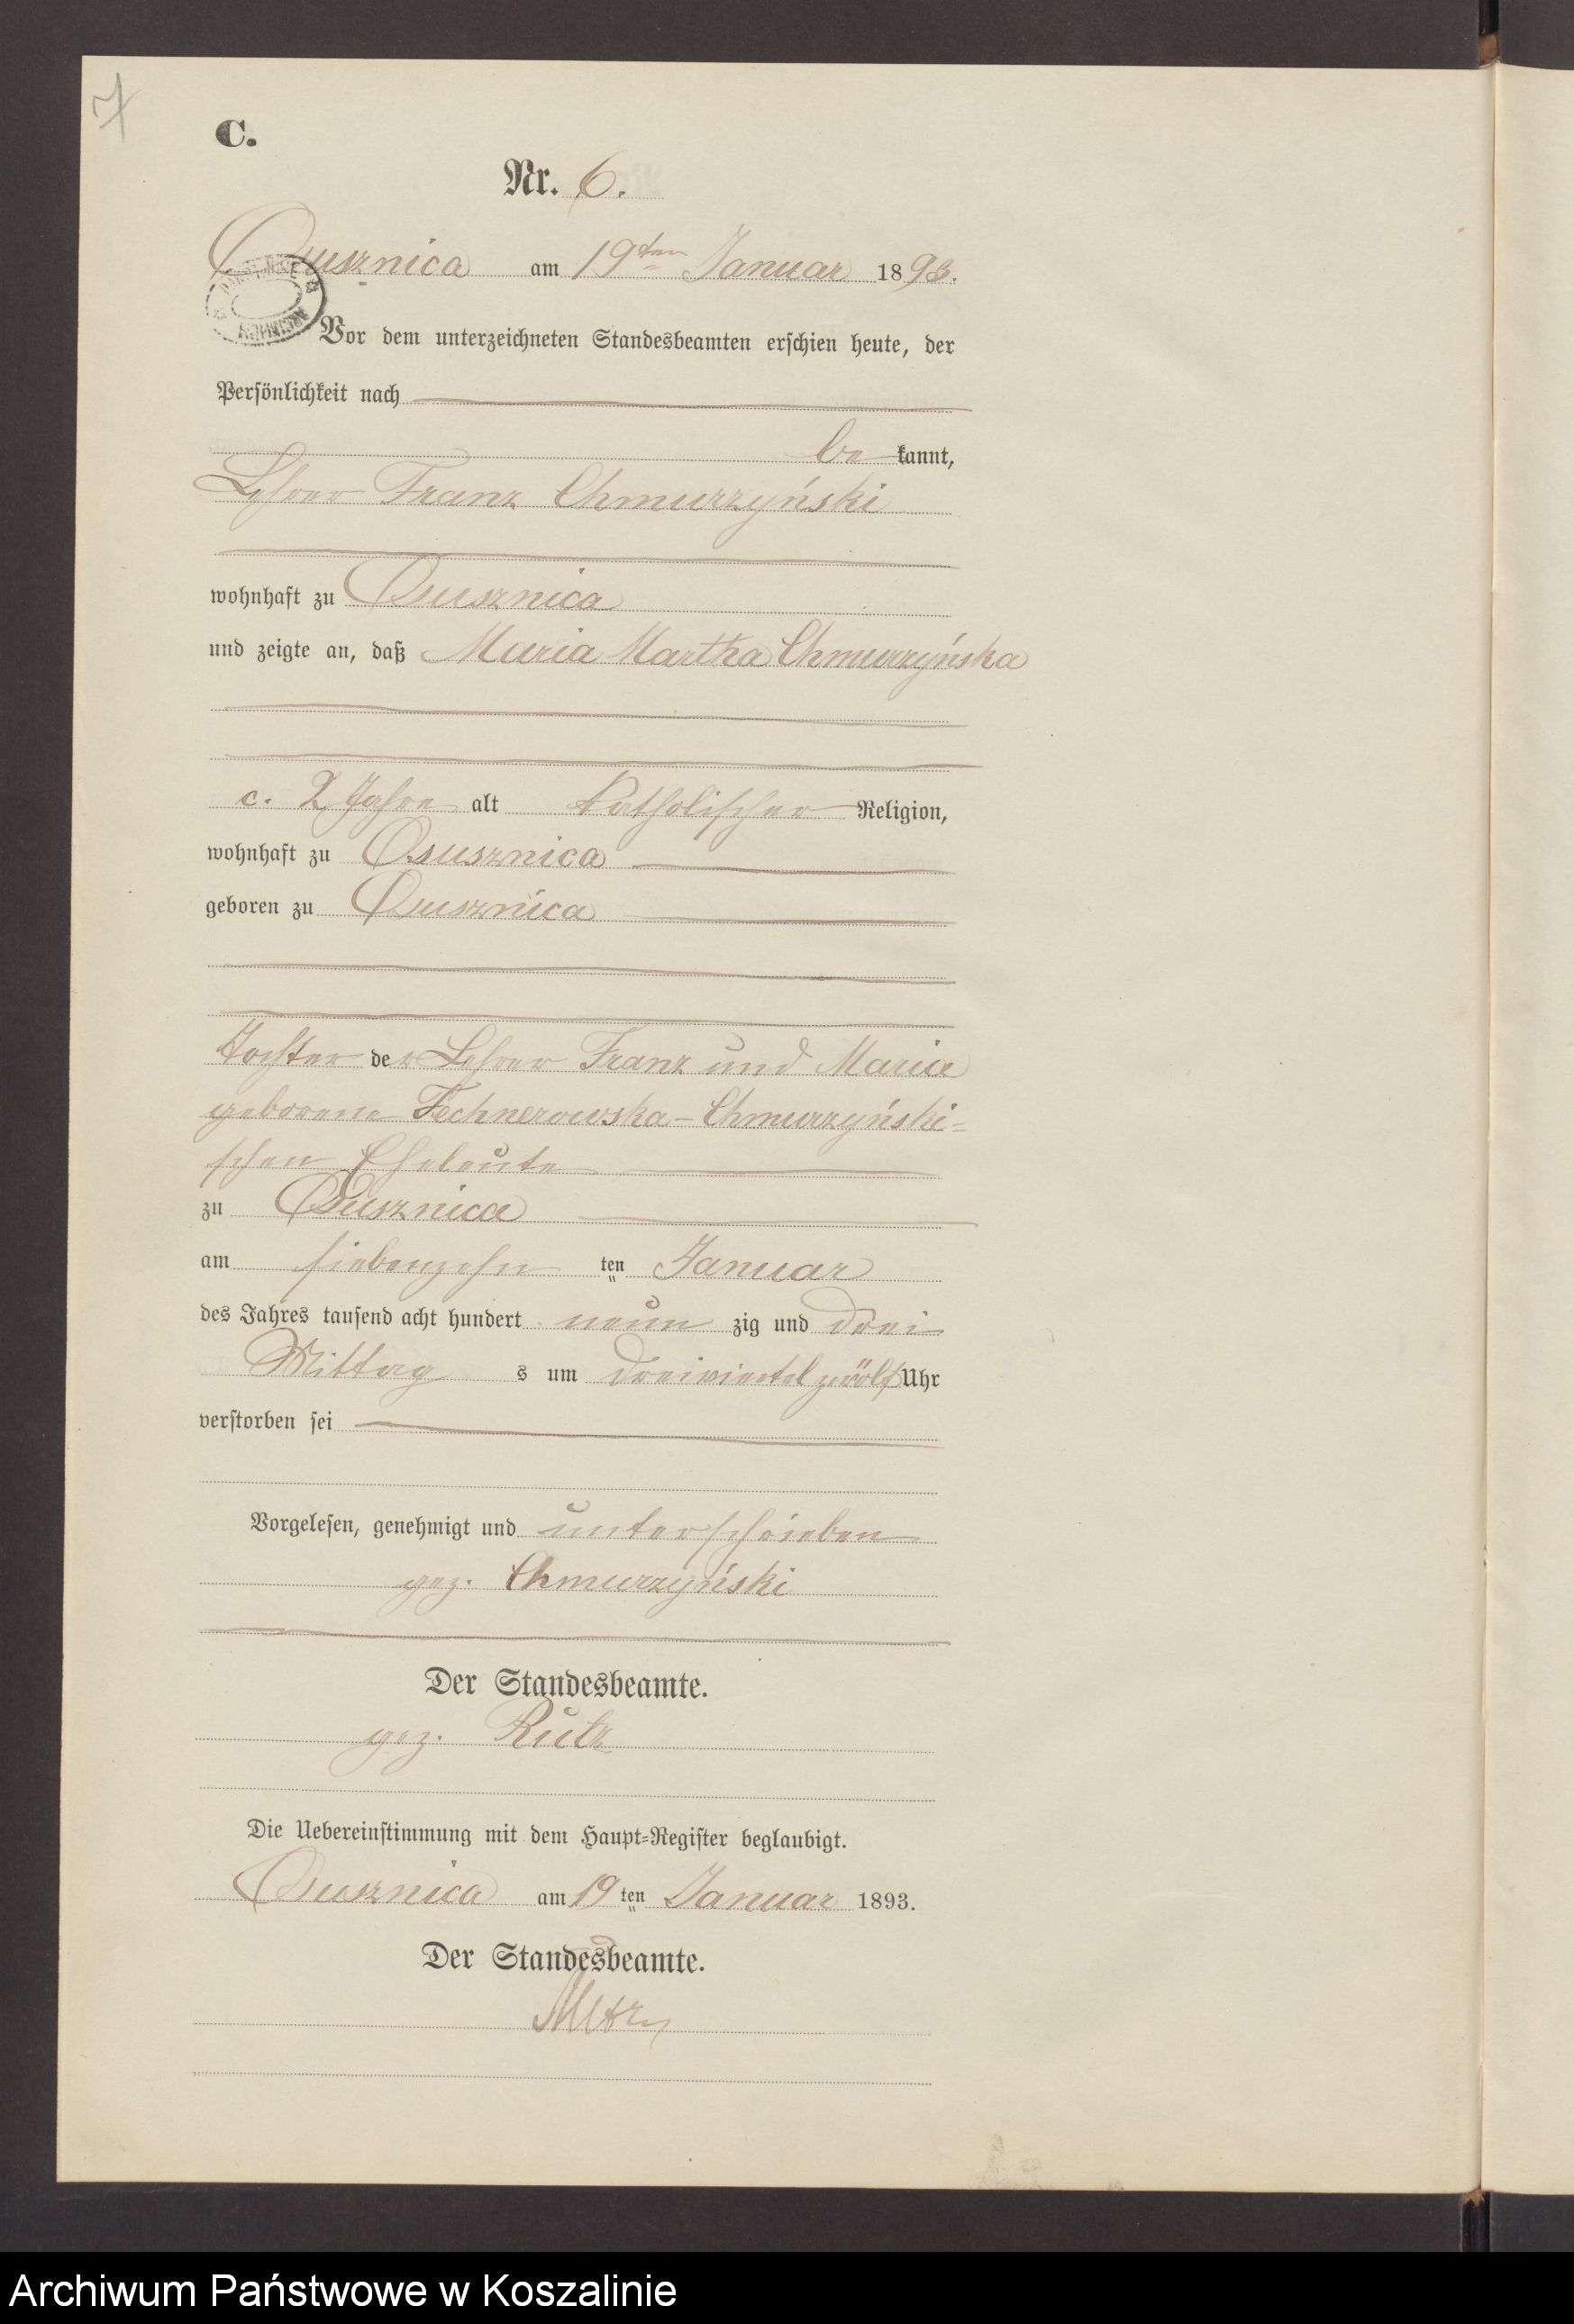 7
C.
Nr. 6.
Osusznica am 19ten Januar 1893.
Vor dem unterzeichneten Standesbeamten erschien heute, der
Persönlichkeit nach
be kannt,
Lehrer Franz Chmurzyński
wohnhaft zu Osusznica
und zeigte an, daß Maria Martha Chmurzyńska
c. 2 Jahre alt katholischer Religion,
wohnhaft zu Osusznica
geboren zu Osusznica
Tochter der Lehrer Franz und Maria
geborene Fechnerowska-Chmurzyński-
schen Eheleute
zu Osusznica
am siebenzehn ten Januar
des Jahres tausend acht hundert neun zig und drei
Mittag s um dreiviertel zwölf Uhr
verstorben sei
Vorgelesen, genehmigt und unterschrieben
gez. Chmurzyński
Der Standesbeamte.
gez. Rutz
Die Uebereinstimmung mit dem Haupt-Register beglaubigt.
Osusznica am 19 ten Januar 1893.
Der Standesbeamte.
Archiwum Państwowe w Koszalinie